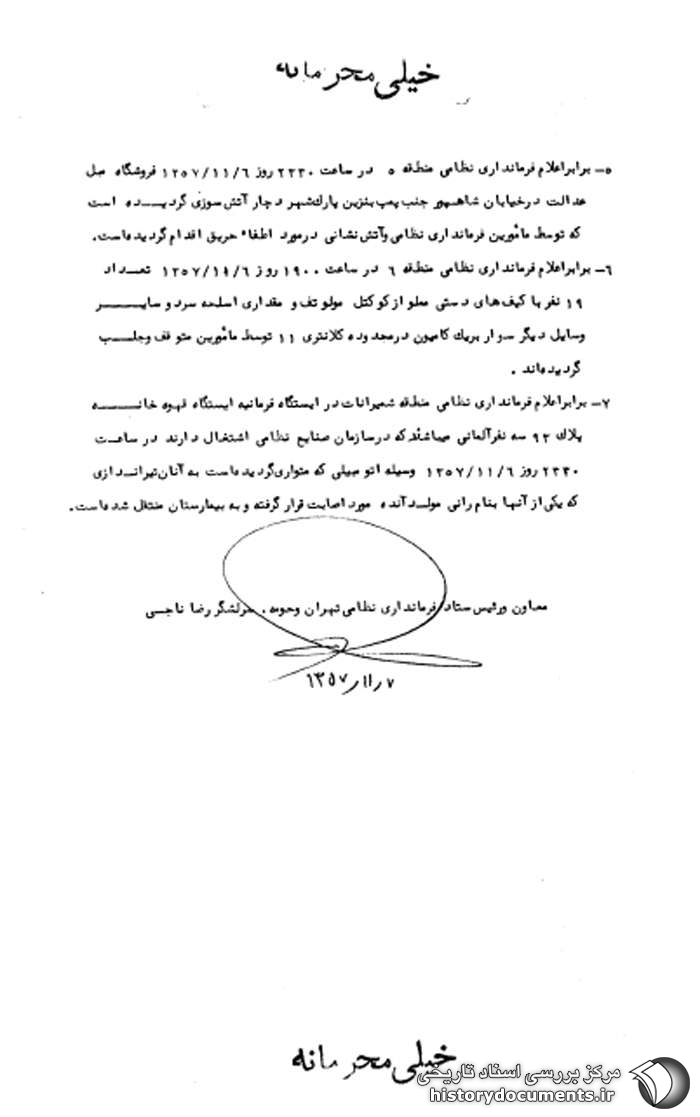 خیلی محرمانه
۵- برابر اعلام فرمانداری نظامی منطقه ۵ در ساعت ۲۳۳۰ روز ۱۳۵۷/۱۱/۶ فروشگاه مبل
عدالت در خیابان شاهپور جنب پمپ بنزین پارک شهر دچار آتش سوزی گردیده است
که توسط مأمورین فرمانداری نظامی وآتش نشانی در مورد اطفاء حریق اقدام گردیده‌است.
۶- برابر اعلام فرمانداری نظامی منطقه ۶ در ساعت ۱۹۰۰ روز ۱۳۵۷/۱۱/۶ تعداد
۱۹ نفر با کیف‌های دستی مملو از کوکتل مولوتف و مقداری اسلحه سرد و سایر
وسایل دیگر سوار بریک کامیون در محدوده کلانتری ۱۱ توسط مأمورین متوقف وجلب
گردیده‌اند .
۷- برابر اعلام فرمانداری نظامی منطقه شمیرانات در ایستگاه فرمانیه ایستگاه قهوه خانه
پلاک ۹۲ سه نفر آلمانی میباشند که در سازمان صنایع نظامی اشتغال دارند در ساعت
۲۳۳۰ روز ۱۳۵۷/۱۱/۶ وسیله اتومبیلی که متواری گردیده‌است به آنان تیراندازی
که یکی از آنها بنام رانی مورد اصابت قرار گرفته و به بیمارستان منتقل شده‌است.
معاون ورئیس ستاد فرمانداری نظامی تهران وحومه . سرلشگر رضا ناجی
۱۳۵۷/۱۱/۷
خیلی محرمانه
مرکز بررسی اسناد تاریخی
historydocuments.ir